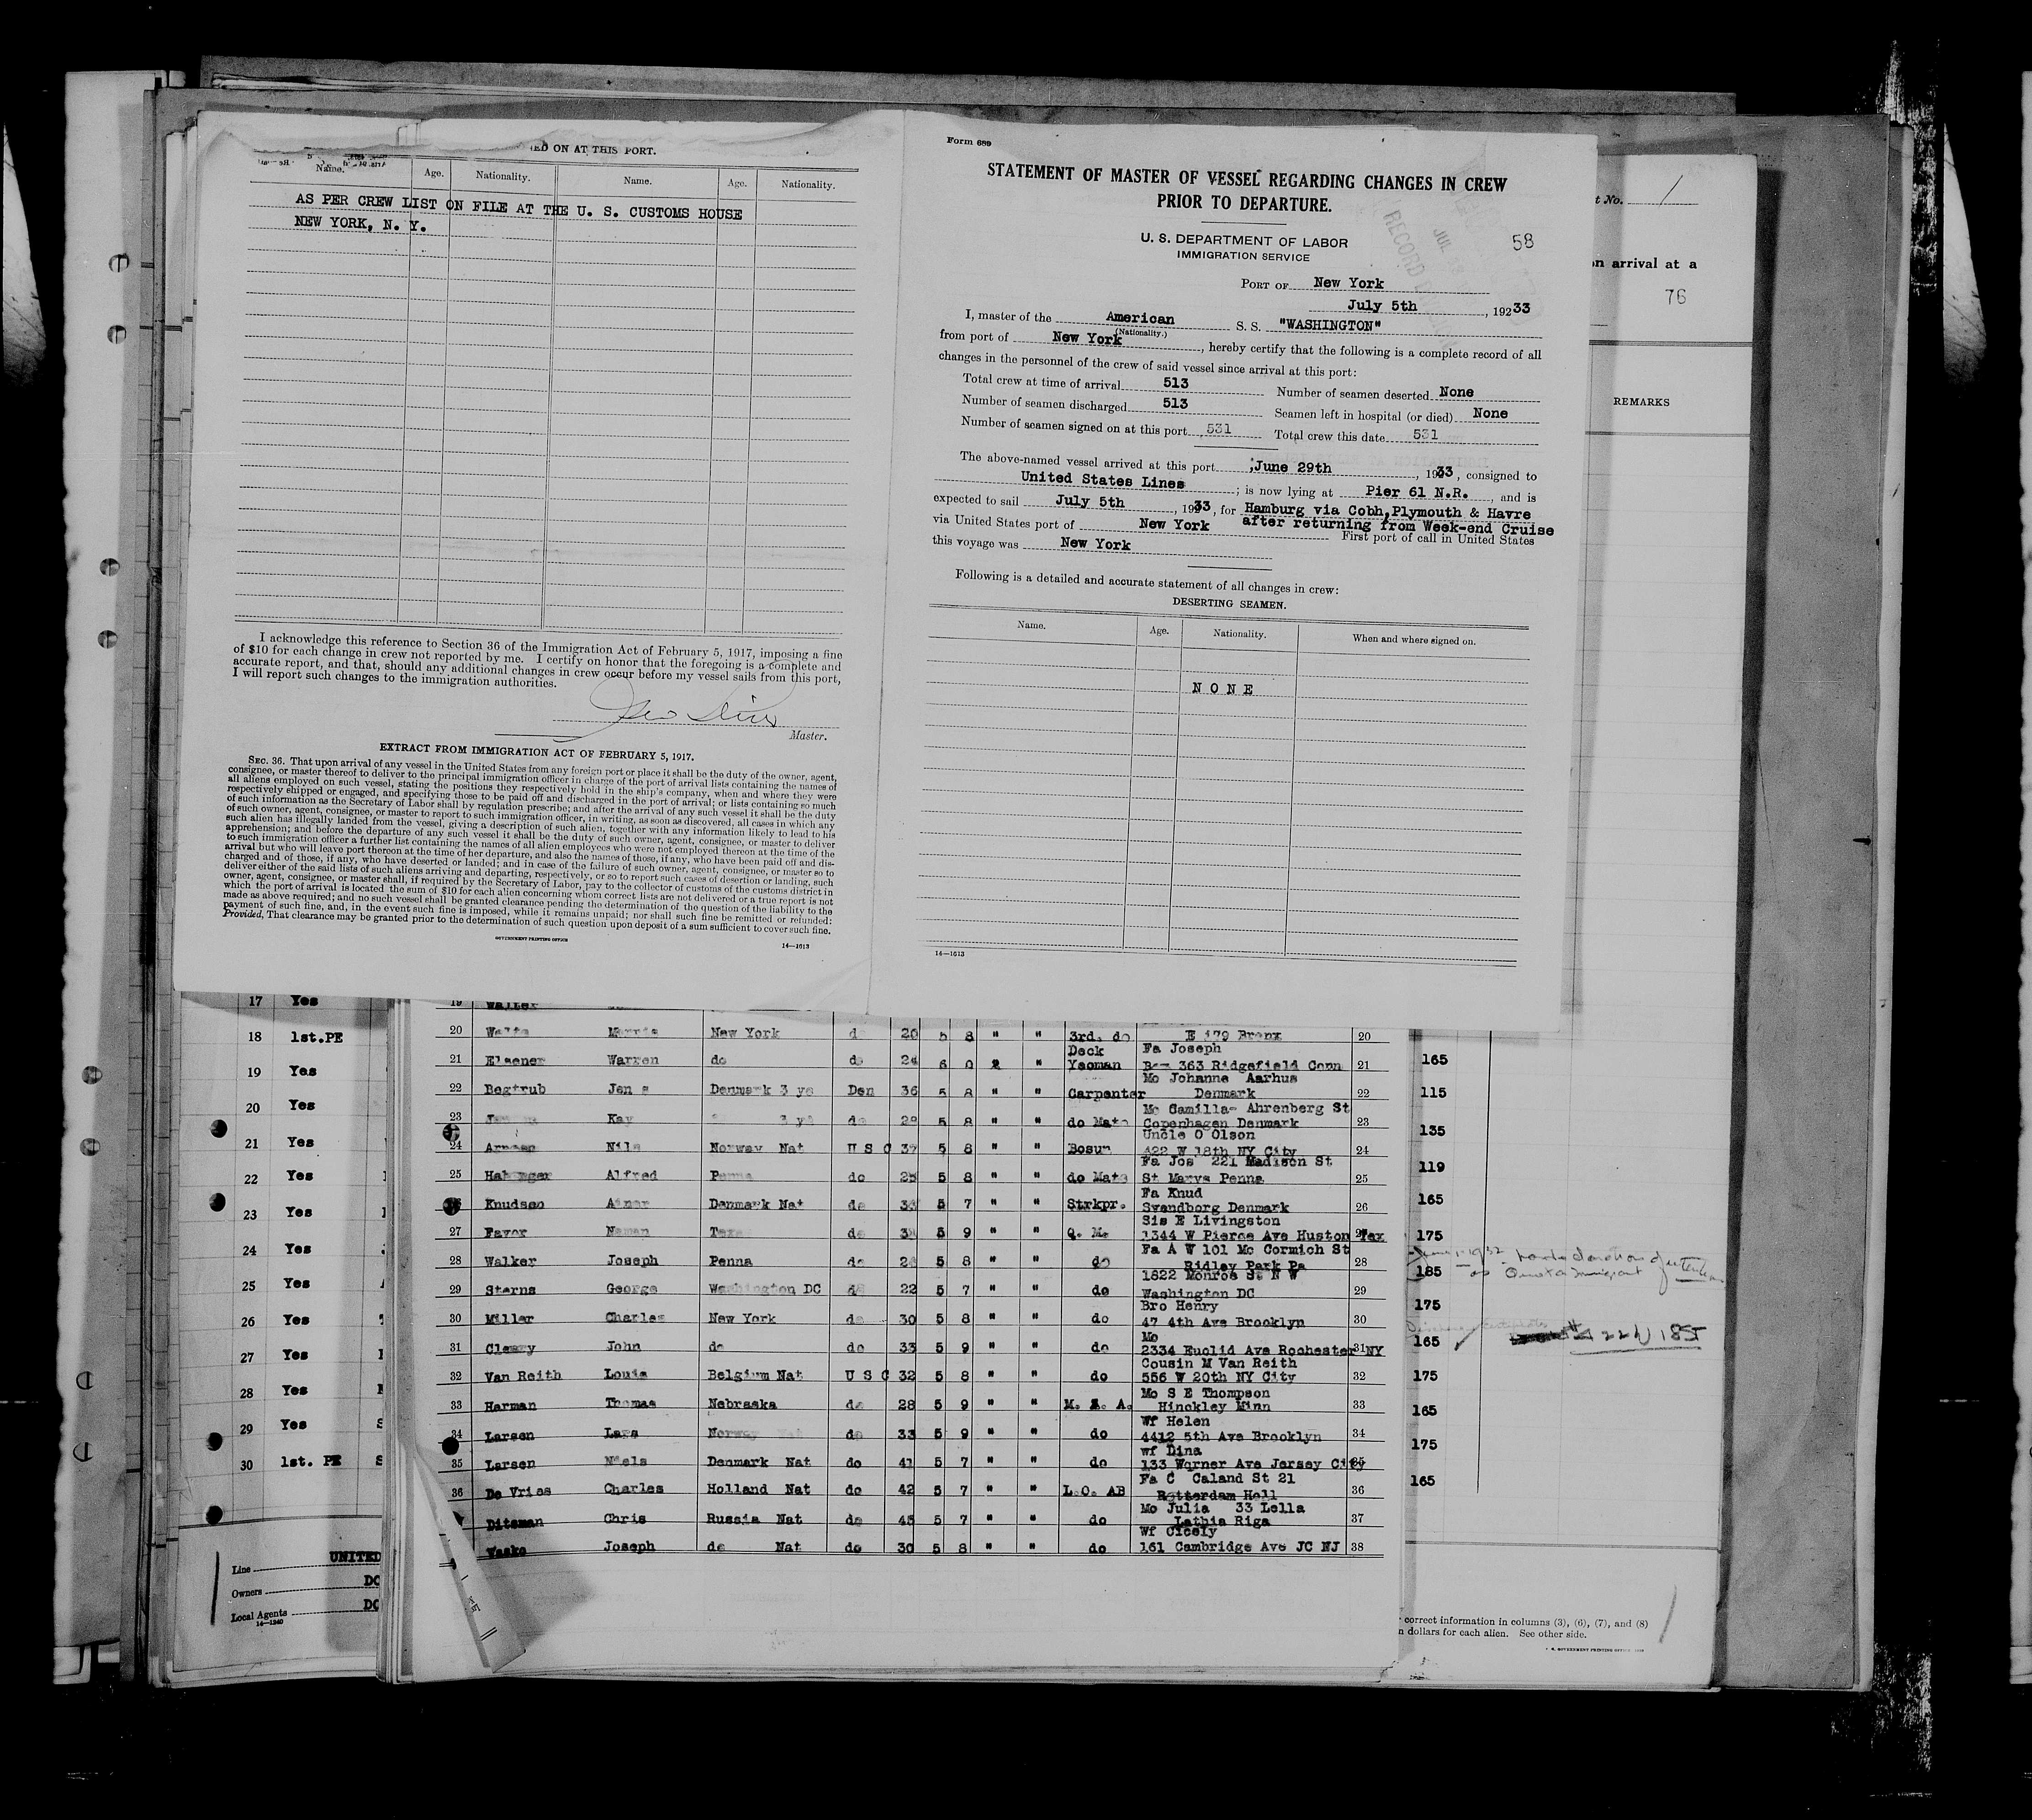 ED ON AT THIS PORT.
Name. Age. Nationality. Name. Age. Nationality.
AS PER CREW LIST ON FILE AT THE U. S. CUSTOMS HOUSE
NEW YORK, N. Y.
I acknowledge this reference to Section 36 of the Immigration Act of February 5, 1917, imposing a fine
of $10 for each change in crew not reported by me. I certify on honor that the foregoing is a complete and
accurate report, and that, should any additional changes in crew occur before my vessel sails from this port,
I will report such changes to the immigration authorities.
Master.
EXTRACT FROM IMMIGRATION ACT OF FEBRUARY 5, 1917.
SEC. 36. That upon arrival of any vessel in the United States from any foreign port or place it shall be the duty of the owner, agent,
consignee, or master thereof to deliver to the principal immigration officer in charge of the port of arrival lists containing the names of
all aliens employed on such vessel, stating the positions they respectively hold in the ship's company, when and where they were
respectively shipped or engaged, and specifying those to be paid off and discharged in the port of arrival; or lists containing so much
of such information as the Secretary of Labor shall by regulation prescribe; and after the arrival of any such vessel it shall be the duty
of such owner, agent, consignee, or master to report to such immigration officer, in writing, as soon as discovered, all cases in which any
such alien has illegally landed from the vessel, giving a description of such alien, together with any information likely to lead to his
apprehension; and before the departure of any such vessel it shall be the duty of such owner, agent, consignee, or master to deliver
to such immigration officer a further list containing the names of all alien employees who were not employed thereon at the time of the
arrival but who will leave port thereon at the time of her departure, and also the names of those, if any, who have been paid off and dis-
charged and of those, if any, who have deserted or landed; and in case of the failure of such owner, agent, consignee, or master so to
deliver either of the said lists of such aliens arriving and departing, respectively, or so to report such cases of desertion or landing, such
owner, agent, consignee, or master shall, if required by the Secretary of Labor, pay to the collector of customs of the customs district in
which the port of arrival is located the sum of $10 for each alien concerning whom correct lists are not delivered or a true report is not
made as above required; and no such vessel shall be granted clearance pending the determination of the question of the liability to the
payment of such fine, and, in the event such fine is imposed, while it remains unpaid; nor shall such fine be remitted or refunded:
Provided, That clearance may be granted prior to the determination of such question upon deposit of a sum sufficient to cover such fine.
GOVERNMENT PRINTING OFFICE 14—1613
Form 689
STATEMENT OF MASTER OF VESSEL REGARDING CHANGES IN CREW
PRIOR TO DEPARTURE.
U. S. DEPARTMENT OF LABOR
IMMIGRATION SERVICE
58
RECORD
JUL
PORT OF New York
July 5th, 19233
I, master of the American S. S. "WASHINGTON"
(Nationality.)
from port of New York, hereby certify that the following is a complete record of all
changes in the personnel of the crew of said vessel since arrival at this port:
Total crew at time of arrival 513 Number of seamen deserted None
Number of seamen discharged 513 Seamen left in hospital (or died) None
Number of seamen signed on at this port 531 Total crew this date 531
The above-named vessel arrived at this port June 29th, 1933, consigned to
United States Lines; is now lying at Pier 61 N.R., and is
expected to sail July 5th, 1933, for Hamburg via Cobh, Plymouth & Havre
via United States port of New York after returning from Week-end Cruise
First port of call in United States
this voyage was New York
Following is a detailed and accurate statement of all changes in crew:
DESERTING SEAMEN.
Name. Age. Nationality. When and where signed on.
NONE
14—1613
t No. 1
n arrival at a
76
REMARKS
17 Yes
18 1st.PE
19 Yes
20 Yes
21 Yes
22 Yes
23 Yes
24 Yes
25 Yes
26 Yes
27 Yes
28 Yes
29 Yes
30 1st. PE
Line UNITED
Owners DO
Local Agents DO
14—1240
19 Walter
20 Morris New York do 20 5 8 " " 3rd. do E 179 Bronx 20
Deck Fa Joseph
21 Elsener Warren do do 24 6 0 " Yeoman Box 363 Ridgefield Conn 21
Mo Johanne Aarhus
22 Begtrub Jens Denmark 3 ys Den 36 5 8 " " Carpenter Denmark 22
Mo Camilla- Ahrenberg St
23 Kay 3 ys do 28 5 8 " " do Mate Copenhagen Denmark 23
Uncle O Olson
24 Nils Norway Nat U S C 37 5 8 " " Bosun 422 W 18th NY City 24
Fa Jos 221 Madison St
25 Alfred Penna do 25 5 8 " " do Mate St Marys Penna 25
Fa Knud
Knudsen Denmark Nat do 5 7 " " Strkpr. Svendborg Denmark 26
Sis E Livingston
27 Favor do 5 9 " " Q. M. 1344 W Pierce Ave Huston Tex
Fa A W 101 Mc Cormich St
28 Walker Joseph Penna do 5 8 " " do Ridley Park Pa 28
1822 Monroe St N W
29 Starns George Washington DC do 22 5 7 " " do Washington DC 29
Bro Henry
30 Miller Charles New York do 30 5 8 " " do 47 4th Ave Brooklyn 30
Mo
31 Cleary John do do 33 5 9 " " do 2334 Euclid Ave Rochester NY 31
Cousin M Van Reith
32 Van Reith Louis Belgium Nat U S C 32 5 8 " " do 556 W 20th NY City 32
Mo S E Thompson
33 Harman Thomas Nebraska do 28 5 9 " " M. A. Hinckley Minn 33
Wf Helen
34 Larsen Lars Norway do 33 5 9 " " do 4412 5th Ave Brooklyn 34
Wf Dina
35 Larsen Niels Denmark Nat do 41 5 7 " " do 133 Warner Ave Jersey City 35
Fa C Caland St 21
36 De Vries Charles Holland Nat do 42 5 7 " " L.O. AB Rotterdam Holl 36
Mo Julia 33 Lella
Ditsman Chris Russia Nat do 45 5 7 " " do Lathia Riga 37
Wf Cicely
Wasko Joseph do Nat do 30 5 8 " " do 161 Cambridge Ave JC NJ 38
165
115
135
119
165
175
185
175
165
175
165
175
165
correct information in columns (3), (6), (7), and (8)
n dollars for each alien. See other side.
U. S. GOVERNMENT PRINTING OFFICE